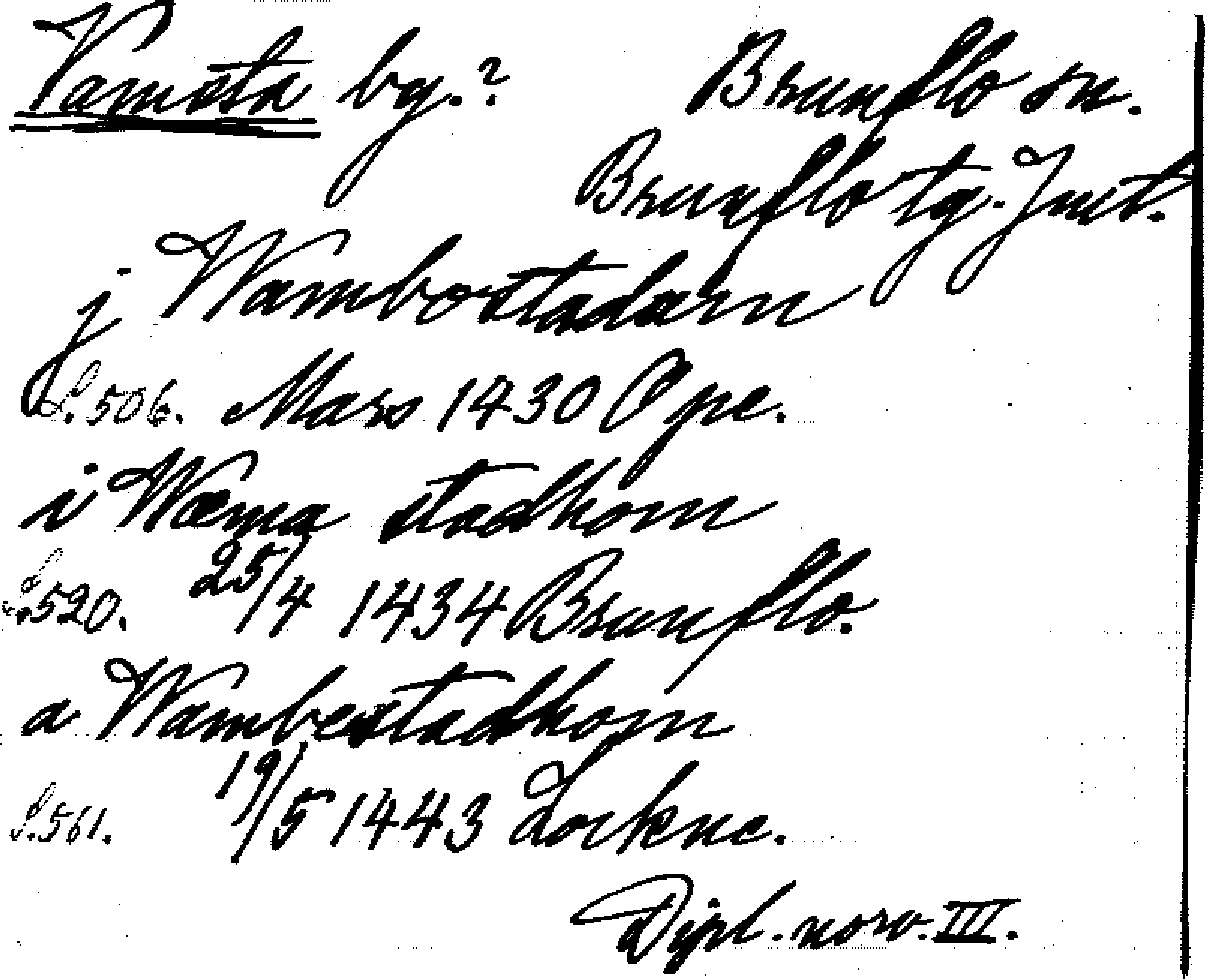 Vamsta by.? Brunflo sn.
Brunflo tg. Jmt.
j Wambostadum
S. 506. Mars 1430 Ope.
i Wæma stadhom
S. 520. 25/4 1434 Brunflo.
a Wambestadhom
S. 561. 19/5 1443 Lockne.
Dipl. norv. III.